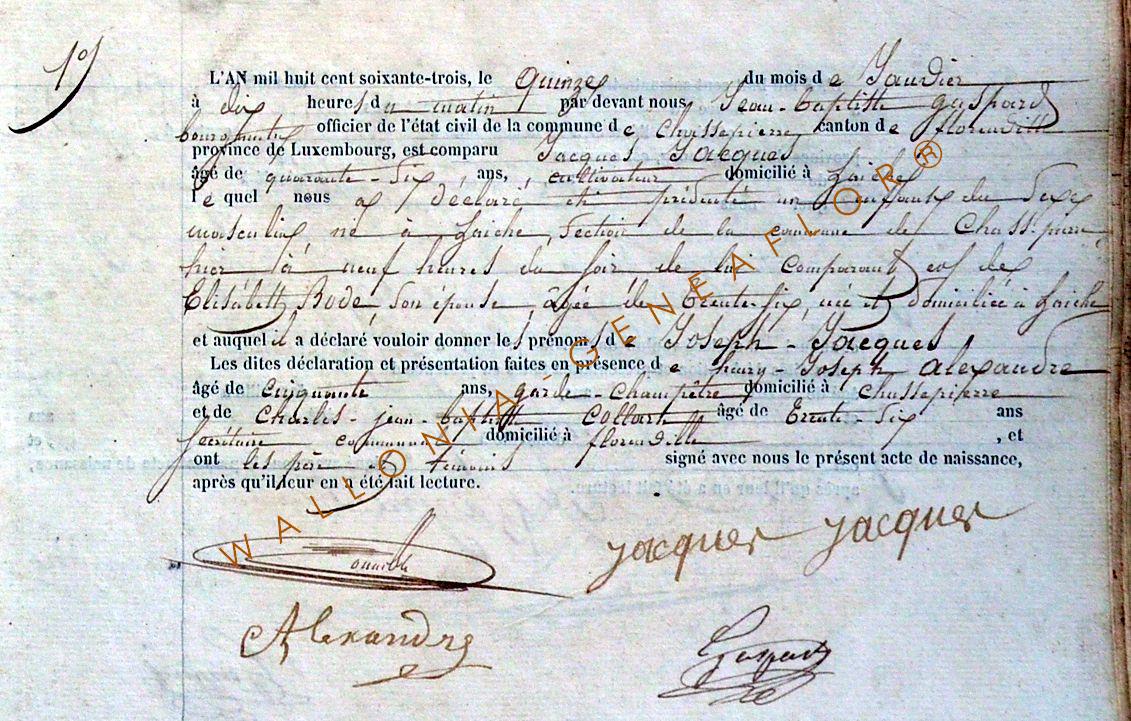 1er
L'AN mil huit cent soixante-trois, le quinze du mois de Janvier
à dix heures du matin par devant nous Jean-baptiste gaspard
bourgmestre officier de l'état civil de la commune de Chassepierre canton de florenville
province de Luxembourg, est comparu Jacques Jacques
âgé de quarante-Six ans, cultivateur domicilié à Laiche
lequel nous a déclaré et présenté un enfant du Sexe
masculin né à Laiche, Section de la commune de Chassepierre
hier à neuf heures du Soir de lui comparant et de
Elisabeth Bode, Son épouse, agée de trente-six, née et domiciliée à Laiche
et auquel il a déclaré vouloir donner les prénoms de Joseph-Jacques
Les dites déclaration et présentation faites en présence de henry-Joseph alexandre
âgé de cinquante ans, garde-champêtre domicilié à chassepierre
et de Charles-jean-baptiste Collart âgé de trente-Six ans
Secrétaire communal domicilié à florenville , et
ont les père et témoins signé avec nous le présent acte de naissance,
après qu'il leur en a été fait lecture.
WALLONIA GENEAFLOR®
jacques jacques
Alexandre
Gaspard